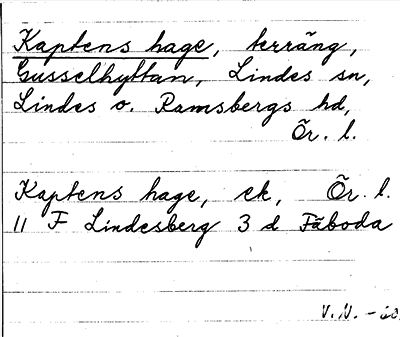 Kaptens hage, terräng,
Gusselhyttan, Lindes sn,
Lindes o. Ramsbergs hd,
Ör. l.
Kaptens hage, ek, Ör. l.
11 F Lindesberg 3 d Fäboda
V.N. - 60.